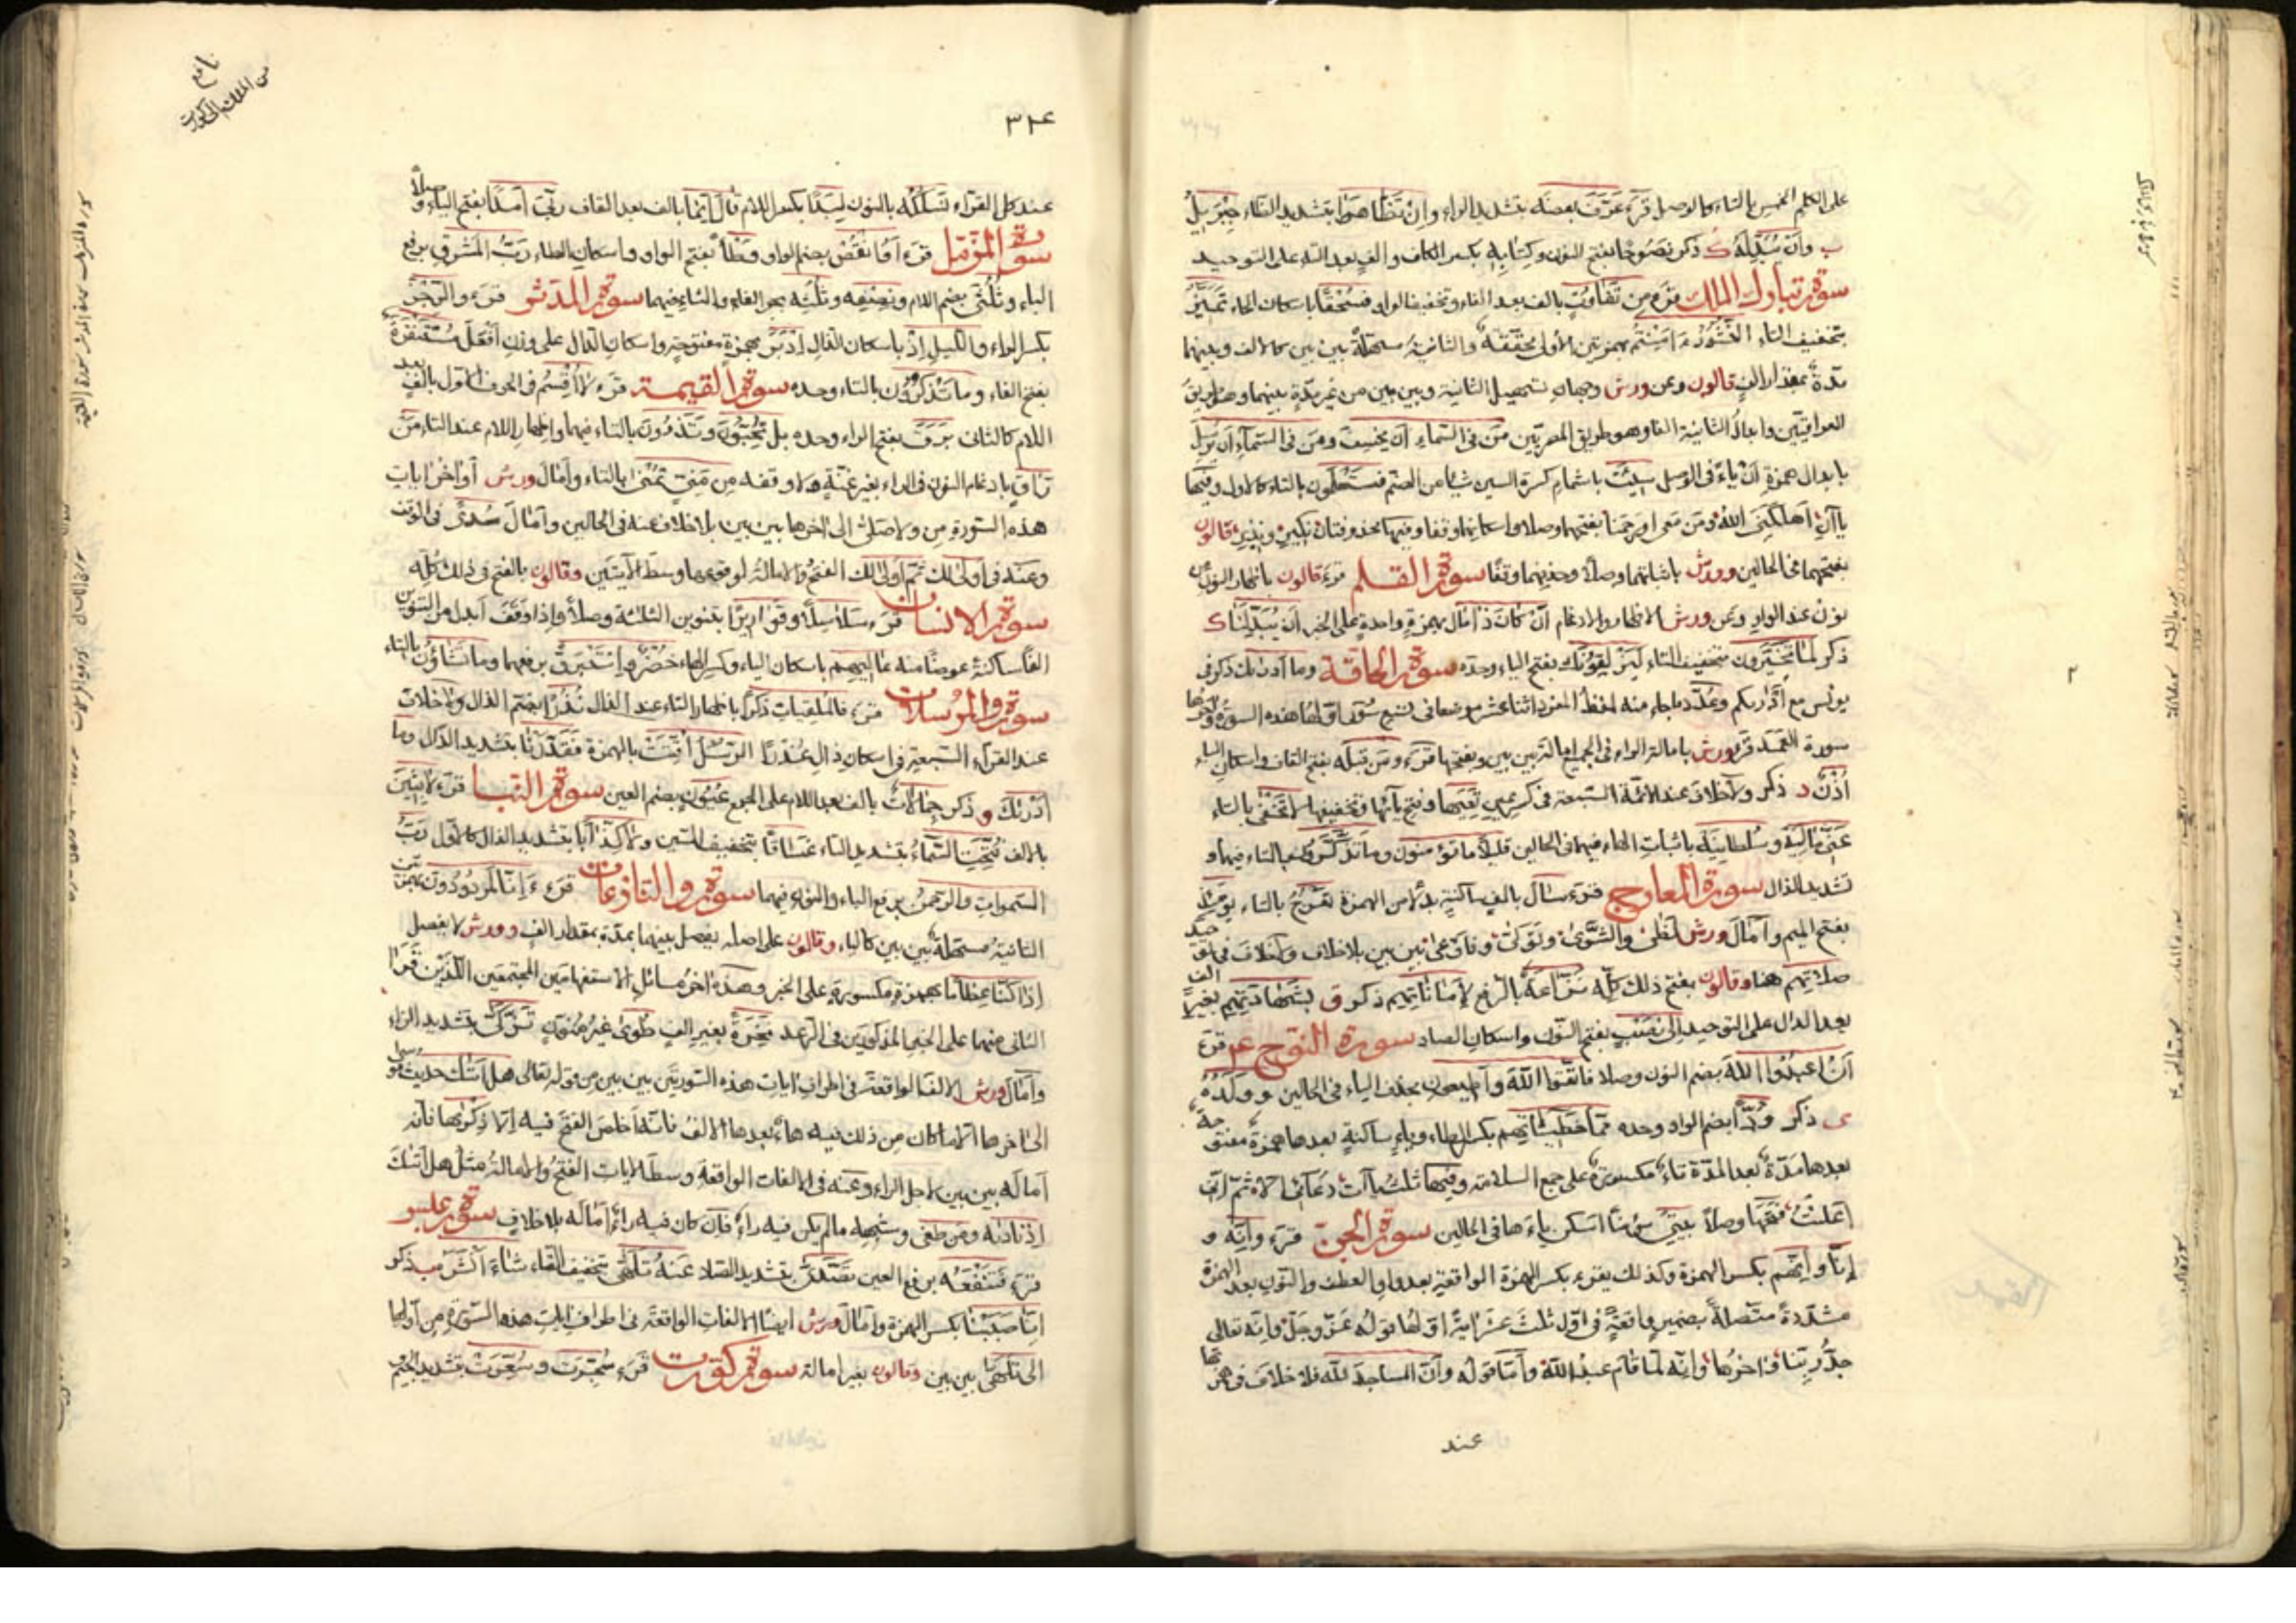 على الكلم الخمس بالتاء كالوصل قرء عَرَّفَ بعضَه بتشديد الراء وإن تظّاهرا بتشديد الظاء جِبْرِيلُ
ب وأن يُبَدِّلَهُ ك ذكر نَصُوحًا بفتح النون وكِتابِهِ بكسر الكاف والف بعد التاء على التوحيد
سورة تبارك الملك قرء من تفاوُتٍ بالف بعد الفاء وتخفيف الواو فسُحْقًا باسكان الحاء تَمَيَّزُ
بتخفيف التاء النُّشُورُ ءَأَمِنْتُم بهمزتين الأولى محقّقة والثانية مسهّلة بين بين كالالف وبينهما
مدّة بمقدار الفٍ قالون وعن ورش وجهان تسهيل الثانية وبين بين من غير مدّةٍ بينهما وهو طريق
العراقيّين وابدالُ الثانية الفا وهو طريق المصريّين مَن فى السّماء أن يخسف ومَن فى السّماء أن يرسل
بابدال همزة أن ياءً فى الوصل سِيئَت باشمام كسرة السين شيئا من الضمّ فستعلمون بالتاء كالاول وفيها
ياآن أهلكنىَ اللهُ ومَن معى أو رحمنا بفتحهما وصلا واسكانهما وقفا وفيها محذوفتان نكير ونذير قالون
بحذفهما فى الحالين وورش باثباتهما وصلاً وحذفهما وقفًا سورة القلم قرء قالون باظهار النون من
نون عند الواو وعن ورش الاظهار والادغام أن كان ذا مال بهمزةٍ واحدةٍ على الخبر أن يُبَدِّلَنا ك
ذكر لما تخيّرون بتخفيف التاء لَيَزْلِقونك بفتح الياء وحده سورة الحاقة وما أدراك ذكر فى
يونس مع أدراكم وعُدّد ما جاء منه لفظ المفرد اثنا عشر موضعا فى تسع سُوَرٍ اوّلها هذه السورة وآخرها
سورة الهمزة قرء ورش بامالة الراء فى الجميع امالة بين بين وبفتحها قرء ومَن قبلَه بفتح القاف واسكان الباء
أُذْنٌ د ذكر ولا خلاف عند الائمّة السبعة فى كسر عين تَعِيَها وفتح يائها وتخفيفها لا تخفى بالتاء
عنّى ماليه وسلطانيه باثبات الهاء فيهما فى الحالين قليلاً ما تؤمنون وما تذكّرون بالتاء فيهما و
تشديد الذال سورة المعارج قرء سال بالفٍ ساكنةٍ بدلًا من الهمزة تعرج بالتاء يومَئذٍ
بفتح الميم وأمال ورش لظى والشوى وتولّى وفأوعى بين بين بلا خلاف
صلاتهم هنا وقالون بفتح ذلك كلّه نزّاعةٌ بالرفع لأماناتهم ذكر ق بشهادتهم بغير الف
بعد الدال على التوحيد إلى نَصْبٍ بفتح النون واسكان الصاد سورة النوح عم قرء
أنُ اعبدوا اللهَ بضم النون وصلا فاتقوا اللهَ وأطيعون بحذف الياء فى الحالين وولده
ى ذكر وُدًّا بضم الواو وحده ممّا خطيئاتهم بكسر الطاء وياءٍ ساكنةٍ بعدها همزة مفتوحة
بعدها مدّة بعد المدّة تاء مكسورة على جمع السلامة وفيها ثلث ياآت دعائى الا ثم انّى
أعلنتُ فتحها وصلاً بيتى مؤمنًا اسكن ياءَها فى الحالين سورة الجن قرء وإنّه و
إنّا وإنّهم بكسر الهمزة وكذلك يقرء بكسر الهمزة الواقعة بعد واو العطف والنون بعد الهمزة
مشدّدةً متّصلةً بضمير واقعةٍ فى اوّل ثلث عشر آيةً اوّلها قولُه عزّ وجلّ وإنّه تعالى
جدّ ربّنا وآخرُها وإنّه لمّا قام عبدُ الله وأمّا قوله وأنّ المساجد لله فلا خلاف فى فتحها
عند
٣٢٤
نافع
من الملك الى كورت
عند كلّ القرّاء نَسْلُكْهُ بالنون لِبَدًا بكسر اللام قال إنما بالف بعد القاف ربّى أمدًا بفتح الياء وصلاً
سورة المزّمّل قرء أوُ انقُصْ بضم الواو وَطْأً بفتح الواو واسكان الطاء ربُّ المشرق برفع
الباء وثُلُثَى بضم اللام ونصفِه وثلثِه بجر الفاء والثاء فيهما سورة المدثر قرء والرِّجزَ
بكسر الراء والّيل إذْ باسكان الذال أدْبَرَ بهمزةٍ مفتوحةٍ واسكان الدال على وزن أفْعَلَ مُسْتَنفَرَةٌ
بفتح الفاء وما تَذكرون بالتاء وحده سورة القيمة قرء لا أقسم فى الحرف الاول بالفٍ بعد
اللام كالثانى بَرَقَ بفتح الراء وحده بل تحبّون وتذرون بالتاء فيهما واظهار اللام عند التاء مَن
رّاقٍ بادغام النون فى الراء بغير غنّةٍ ولا وقفة من منىٍّ تمنى بالتاء وأمال ورش أواخر آيات
هذه السورة من ولا صلّى الى آخرها بين بين بلا خلاف عنه فى الحالين وأمال سُدًى فى الوقف
وعنه فى أولى لك ثم أولى لك الفتحُ والامالةُ لوقوعها وسط الآيتين وقالون بالفتح فى ذلك كلّه
سورة الانسان قرء سلاسلاً وقواريرًا بتنوين الثلثة وصلاً واذا وقف أبدل من التنوين
الفًا ساكنة عوضًا منه عاليهم باسكان الياء وكسر الهاء خضرٌ وإستبرقٌ برفعهما وما تشاؤن بالتاء
سورة والمرسلات قرء فالملقيات ذكرًا باظهار التاء عند الذال نُذُرًا بضم الذال ولا خلاف
عند القرّاء السبعة فى اسكان ذال عُذْرًا الرسل أقّتت بالهمزة فقدّرنا بتشديد الدال وما
أدريك و ذكر جمالاتٌ بالف بعد اللام على الجمع عُيُون بضم العين سورة النبأ قرء لابثين
بالالف فُتّحت السّماء بتشديد التاء غَسَاقًا بتخفيف السين ولا كذّابا بتشديد الذال كالاوّل ربُّ
السموات والرحمنُ برفع الباء والنون فيهما سورة والنازعات قرء ءَإنّا لمردودون بهمزتين
الثانية مسهّلة بين بين كالياء وقالون على اصله يفصل بينهما بمدّة بمقدار الفٍ وورش لا يفصل
إذا كنّا عظاما بهمزة مكسورة على الخبر وهذه آخر مسائل الاستفهامين المجتمعين اللّذين قرا
الثانى منهما على الخبر المذكورَين فى الرعد نَخِرَةً بغير الف طوى غير منوّن تزّكّى بتشديد الزاء
وأمال ورش الالف الواقعة فى اطراف آيات هذه السورة بين بين من قوله تعالى هل أتيك حديث موسى
الى آخرها الا ما كان من ذلك فيه هاء بعدها الالف فانّه أخلص الفتح فيه إلّا ذكريها فانّه
أماله بين بين لاجل الراء وعنه فى الالفات الواقعة وسط الآيات الفتح والامالةُ مثل هل أتيك
إذ ناديه ومَن طغى وشبهه ما لم يكن فيه راء فان كان فيه راء أماله بلا خلاف سورة عبس
قرء فتنفعُه برفع العين تصّدّى بتشديد الصاد عنه تلهّى بتخفيف التاء شاء أنشره ب ذكر
إنّا صببنا بكسر الهمزة وأمال ورش ايضًا الالفات الواقعة فى اطراف آيات هذه السورة من أوّلها
الى تلهّى بين بين وقالون بغير امالة سورة كوّرت قرء سُجّرت وسُعّرت بتشديد الجيم